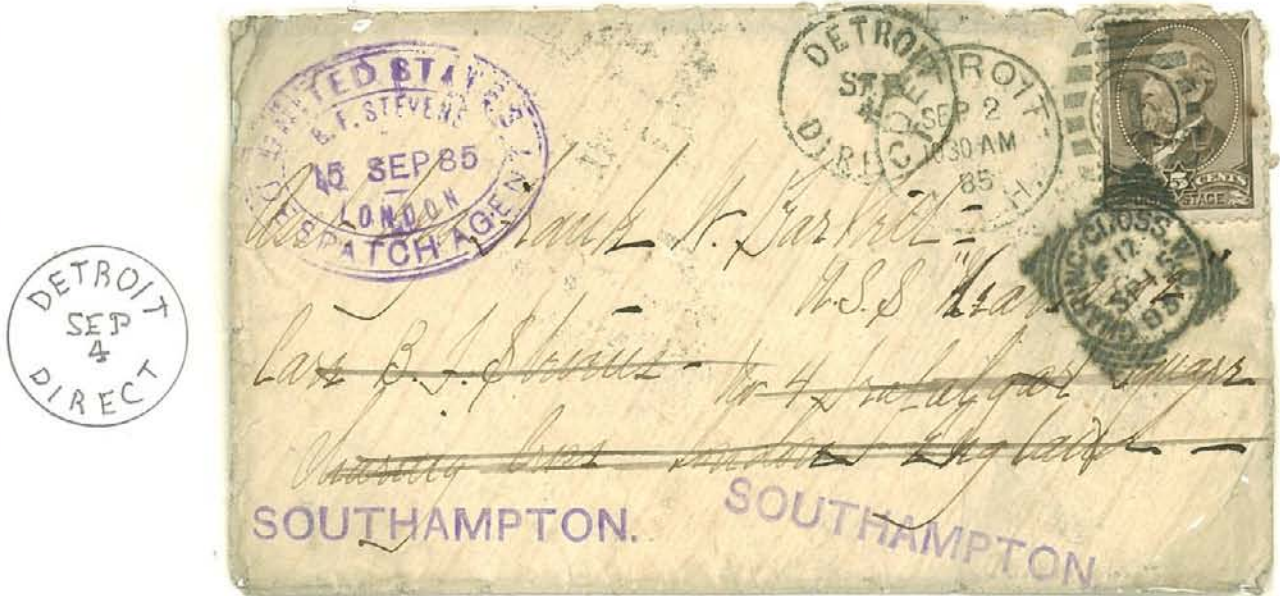 DETROIT
SEP
4
DIRECT
UNITED STATES
B. F. STEVENS
15 SEP 85
LONDON
DESPATCH AGENT
DETROIT
SEP
4
DIRECT
DETROIT
SEP 2
1030 AM
85
5 CENTS
POSTAGE
CHARING-CROSS-W.C.
12
SP 15
85
Frank W.
U.S.S.
Care B. F. Stevens
No 4 Trafalgar Square
Charing Cross London England
SOUTHAMPTON.
SOUTHAMPTON.